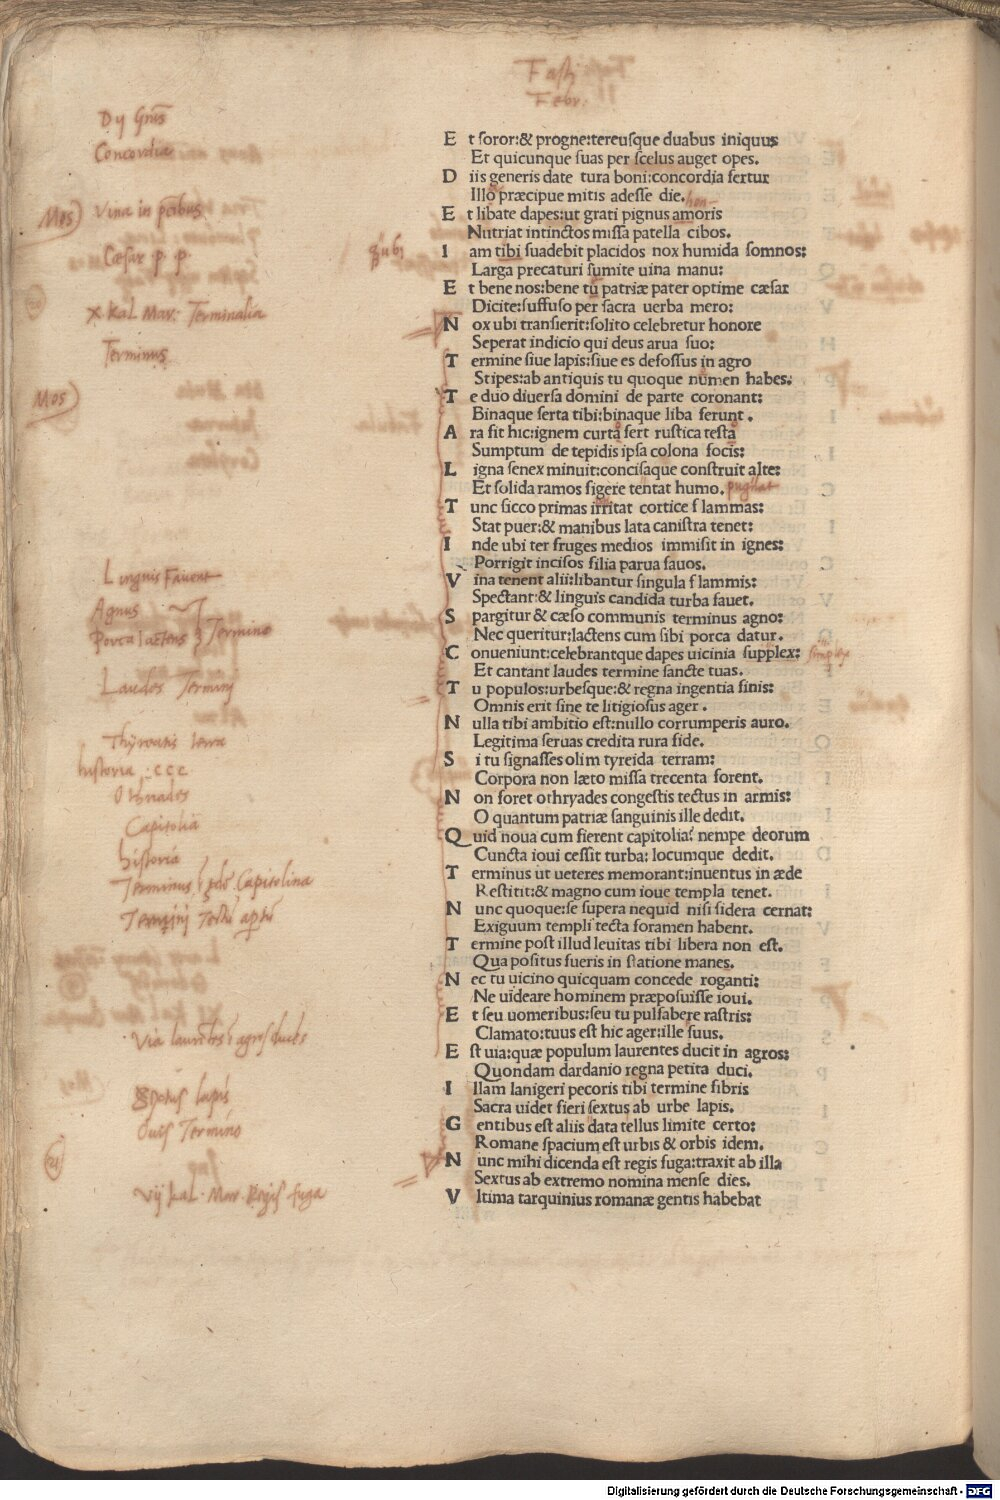 Fasti
Febr.
Concordia
Mos
Cæsar p. p.
x Kal Mar: Terminalia
Terminus
Mos
Linguis Favent
Agnus
Porca lactens } Termino
Laudes Terminj
historia . ccc
Othriades
Capitolia
historia
Ovis Termino
21
vij kal. Mar. Regis fuga
E t soror:& progne:tereusque duabus iniquus
Et quicunque suas per scelus auget opes.
D iis generis date tura boni:concordia fertur
Illo præcipue mitis adesse die.
E t libate dapes:ut grati pignus amoris
hon-
Nutriat intinctos missa patella cibos.
I am tibi suadebit placidos nox humida somnos:
Larga precaturi sumite uina manu:
E t bene nos:bene tu patriæ pater optime cæsar
Dicite:suffuso per sacra uerba mero:
N ox ubi transierit:solito celebretur honore
Seperat indicio qui deus arua suo:
T ermine siue lapis:siue es defossus in agro
Stipes:ab antiquis tu quoque numen habes.
T e duo diuersa domini de parte coronant:
Binaque serta tibi:binaque liba ferunt.
A ra fit hic:ignem curta fert rustica testa
Sumptum de tepidis ipsa colona focis:
L igna senex minuit:concisaque construit alte:
Et solida ramos figere tentat humo. pugnat
T unc sicco primas irritat cortice flammas:
Stat puer:& manibus lata canistra tenet:
I nde ubi ter fruges medios immisit in ignes:
Porrigit incisos filia parua fauos.
V ina tenent alii:libantur singula flammis:
Spectant:& linguis candida turba fauet.
S pargitur & cæso communis terminus agno:
Nec queritur:lactens cum sibi porca datur.
C onueniunt:celebrantque dapes uicinia supplex: simplex
Et cantant laudes termine sancte tuas.
T u populos:urbesque:& regna ingentia finis:
Omnis erit sine te litigiosus ager.
N ulla tibi ambitio est:nullo corrumperis auro.
Legitima seruas credita rura fide.
S i tu signasses olim tyreida terram:
Corpora non læto missa trecenta forent.
N on foret othryades congestis tectus in armis:
O quantum patriæ sanguinis ille dedit.
Q uid noua cum fierent capitolia? nempe deorum
Cuncta ioui cessit turba: locumque dedit.
T erminus ut ueteres memorant:inuentus in æde
Restitit:& magno cum ioue templa tenet.
N unc quoque:se supera nequid nisi sidera cernat:
Exiguum templi tecta foramen habent.
T ermine post illud leuitas tibi libera non est.
Qua positus fueris in statione manes.
N ec tu uicino quicquam concede roganti:
Ne uideare hominem præposuisse ioui.
E t seu uomeribus:seu tu pulsabere rastris:
Clamato:tuus est hic ager:ille suus.
E st uia:quæ populum laurentes ducit in agros:
Quondam dardanio regna petita duci.
I llam lanigeri pecoris tibi termine fibris
Sacra uidet fieri sextus ab urbe lapis.
G entibus est aliis data tellus limite certo:
Romane spacium est urbis & orbis idem.
N unc mihi dicenda est regis fuga:traxit ab illa
Sextus ab extremo nomina mense dies.
V ltima tarquinius romanæ gentis habebat
Digitalisierung gefördert durch die Deutsche Forschungsgemeinschaft - DFG